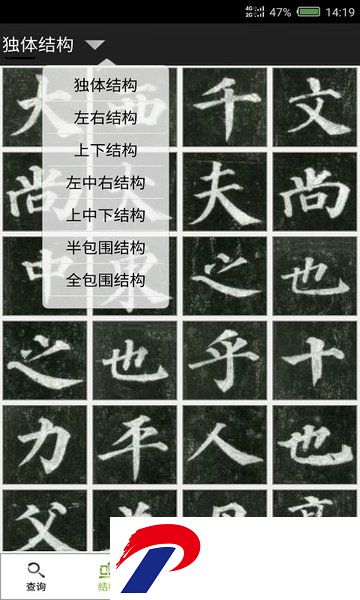 4G 2G 47% 14:19
独体结构
独体结构
左右结构
上下结构
左中右结构
上中下结构
半包围结构
全包围结构
大 西 千 文
尚 夫 尚
中 之 也
之 也 乎 十
力 平 人 也
父
查询
结